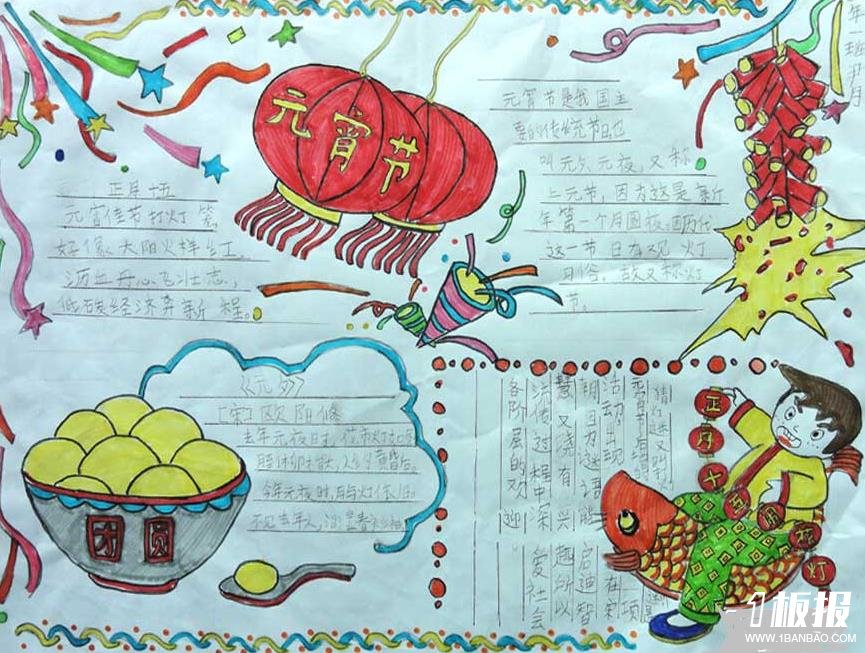 元宵节
元宵节是我国主
要的传统节日,也
叫元夕、元夜,又称
上元节,因为这是新
年第一个月圆夜,因历代
这一节日有观灯
习俗,故又称灯
节。
正月十五
元宵佳节打灯笼
好像太阳火样红。
沥血丹心飞壮志,
低碳经济奔新程。
《元夕》
[宋]欧阳修
去年元夜时,花市灯如
人约黄昏后。
今年元夜时,月与灯依旧。
不见去年人,泪湿春衫袖。
团圆
猜灯谜又
活动,出现在宋
朝因为谜语能启迪智
慧又饶有兴趣所以
流传过程中深爱社会
各阶层的欢迎
正月十五
灯
板报
WWW.1BANBAO.COM